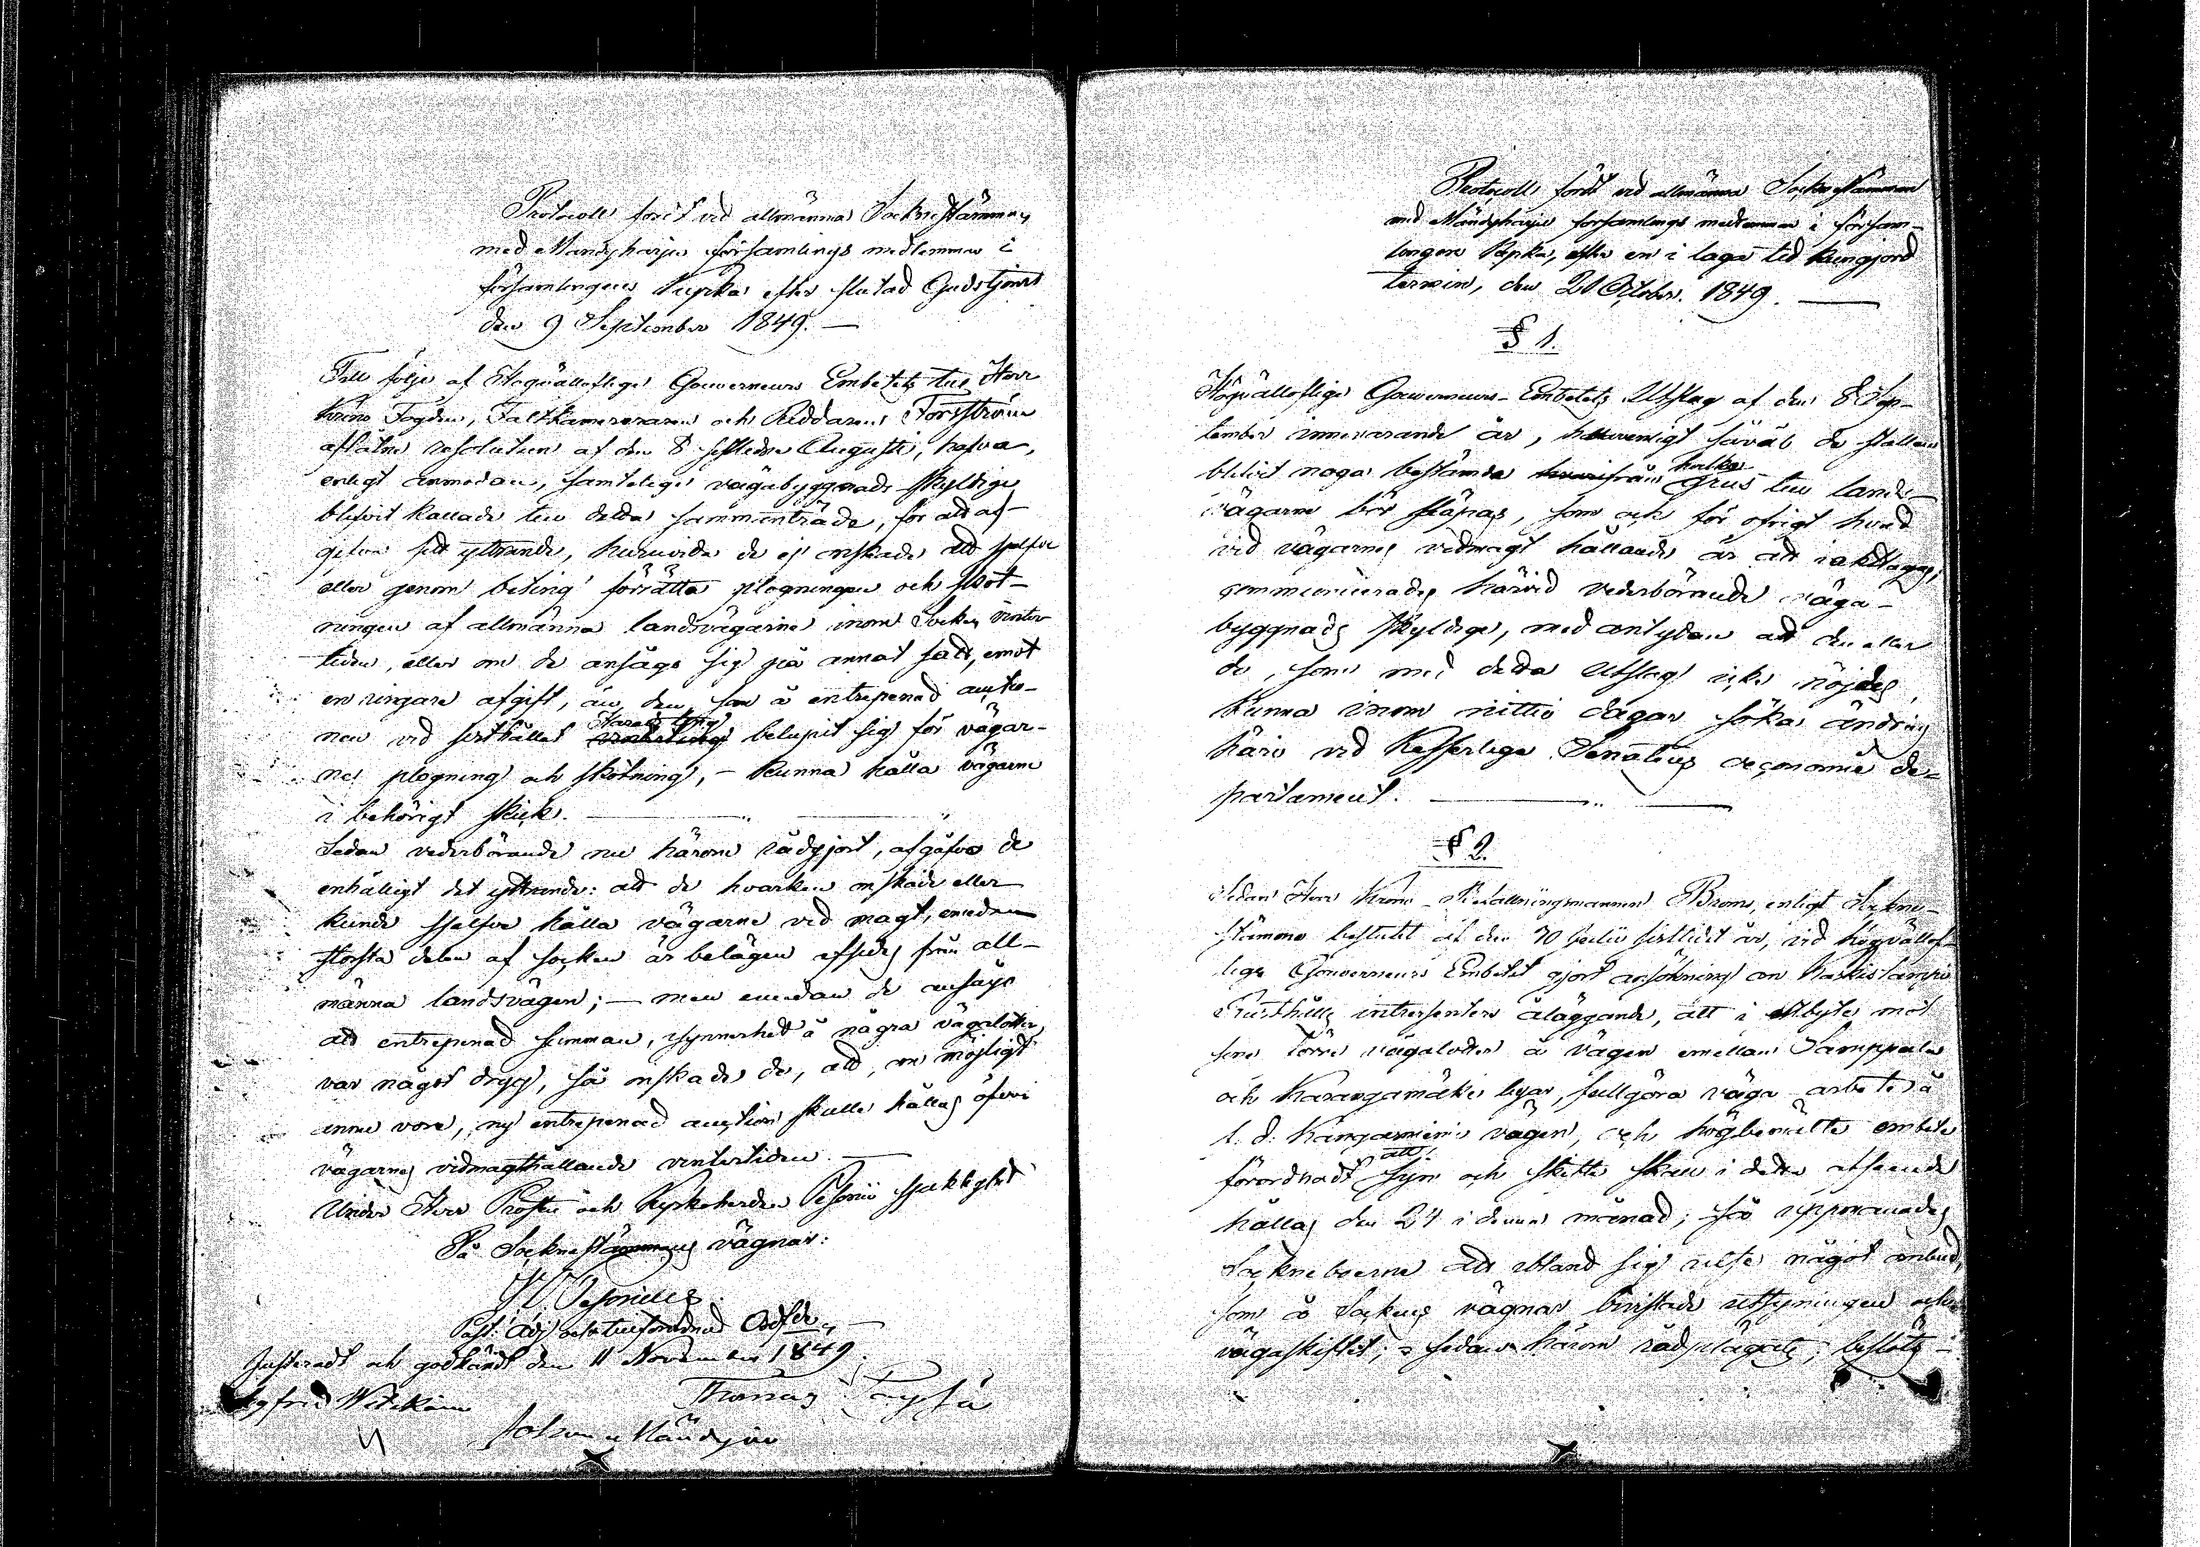 Protocoll fördt vid allmänna Sockne Stämman
med Mändyharju församlings medlemmar i
församlingens Kyrka efter slutad Gudstjenst
den 9 September 1849. —
Till följe af Högvällofliga Gouverneurs Embetets till Herr
Krono Fogden, Fältkamereraren och Riddaren Forsström
aflåtne resolution af den 8 sistledne Augusti, hafva,
enligt anmodan, samtelige vägabyggnads skyldige
blifvit kallade till detta sammanträde, för att af-
gifva sitt yttrande, huruvida de ej önskade att sjelfve
eller genom beting förrätta plogningen och sköt-
ningen af allmänna landsvägarne inom Socken vinter
tiden, eller om de ansågo sig på annat sätt, emot
en ringare afgift, än den, som å entrepenad auctio-
nen vid sisthållet Härads ting vinterting belupit sig för vägar-
nes plogning och skötning, — kunna hålla vägarne
i behörigt skick.
Sedan vederbörande nu härom rådgjort, afgåfvo de
enhälligt det yttrande: att de hvarken önskade eller
kunde sjelfve hålla vägarne vid magt, emedan
största delen af socken är belägen afsides från all-
männa landsvägen; — men emedan de ansågo
att entrepenad summan, synnerhet å några vägalotter
var något dryg, så önskade de, att, om möjligt
ännu vore, ny entrepenad auction skulle hållas öfver
vägarnes vidmagthållande vintertiden. —
Under Herr Prosten och Kyrkoherden Pesonii sjuklighet
På Socknestämmans vägnar:
Pesonius
Past: Adj
Justeradt och godkändt den 11 November 1849.
Thomas
Protocoll fördt vid allmänna Sockne Stämman
med Mändyharju församlings medlemmar i försam-
lingens Kyrka, efter en i laga tid kungjord
termin, den 21 October. 1849. —
§ 1.
Högvällofliga Gouverneurs-Embetets Utslag af den 8 Sep-
tember innevarande år, hvarmedelst såväl de ställen
blifvit noga bestämda hvarifrån hvilka grus till lands-
vägarne bör släpas, som ock för öfrigt hvad
vid vägarnes vidmagt hållande är att iakttaga,
communicerades härvid vederbörande väga-
byggnads skyldige, med antydan att den eller
de, som med detta Utslag icke nöjdes,
kunna inom nittio dagar söka ändring
häri vid Kejserliga Senatens oeconomie de-
partament.
§ 2.
Sedan Herr Krono-Befallningsmannen Brom, enligt Sockne-
stämmo beslutet af den 30 Julii sistlidet år, vid högvällof-
lige Gouverneurs Embetet gjort ansökning om
Rusthålls intressenters åläggande, att i utbyte mot
sine förre vägalotter å vägen emellan Samppala
och Karangamäki byar, fullgöra väga arbete å
s. d. Kangasniemi vägen, och högbemälte embete
förordnadt att syn och skifte skall i detta afseende
hållas den 24 i denna månad; så uppmanades
Sockneboerne att ibland sig utse något ombud,
som å Sockens vägnar bivistade utsyningen och
vägaskiftet; & sedan härom rådplägats, beslöts —